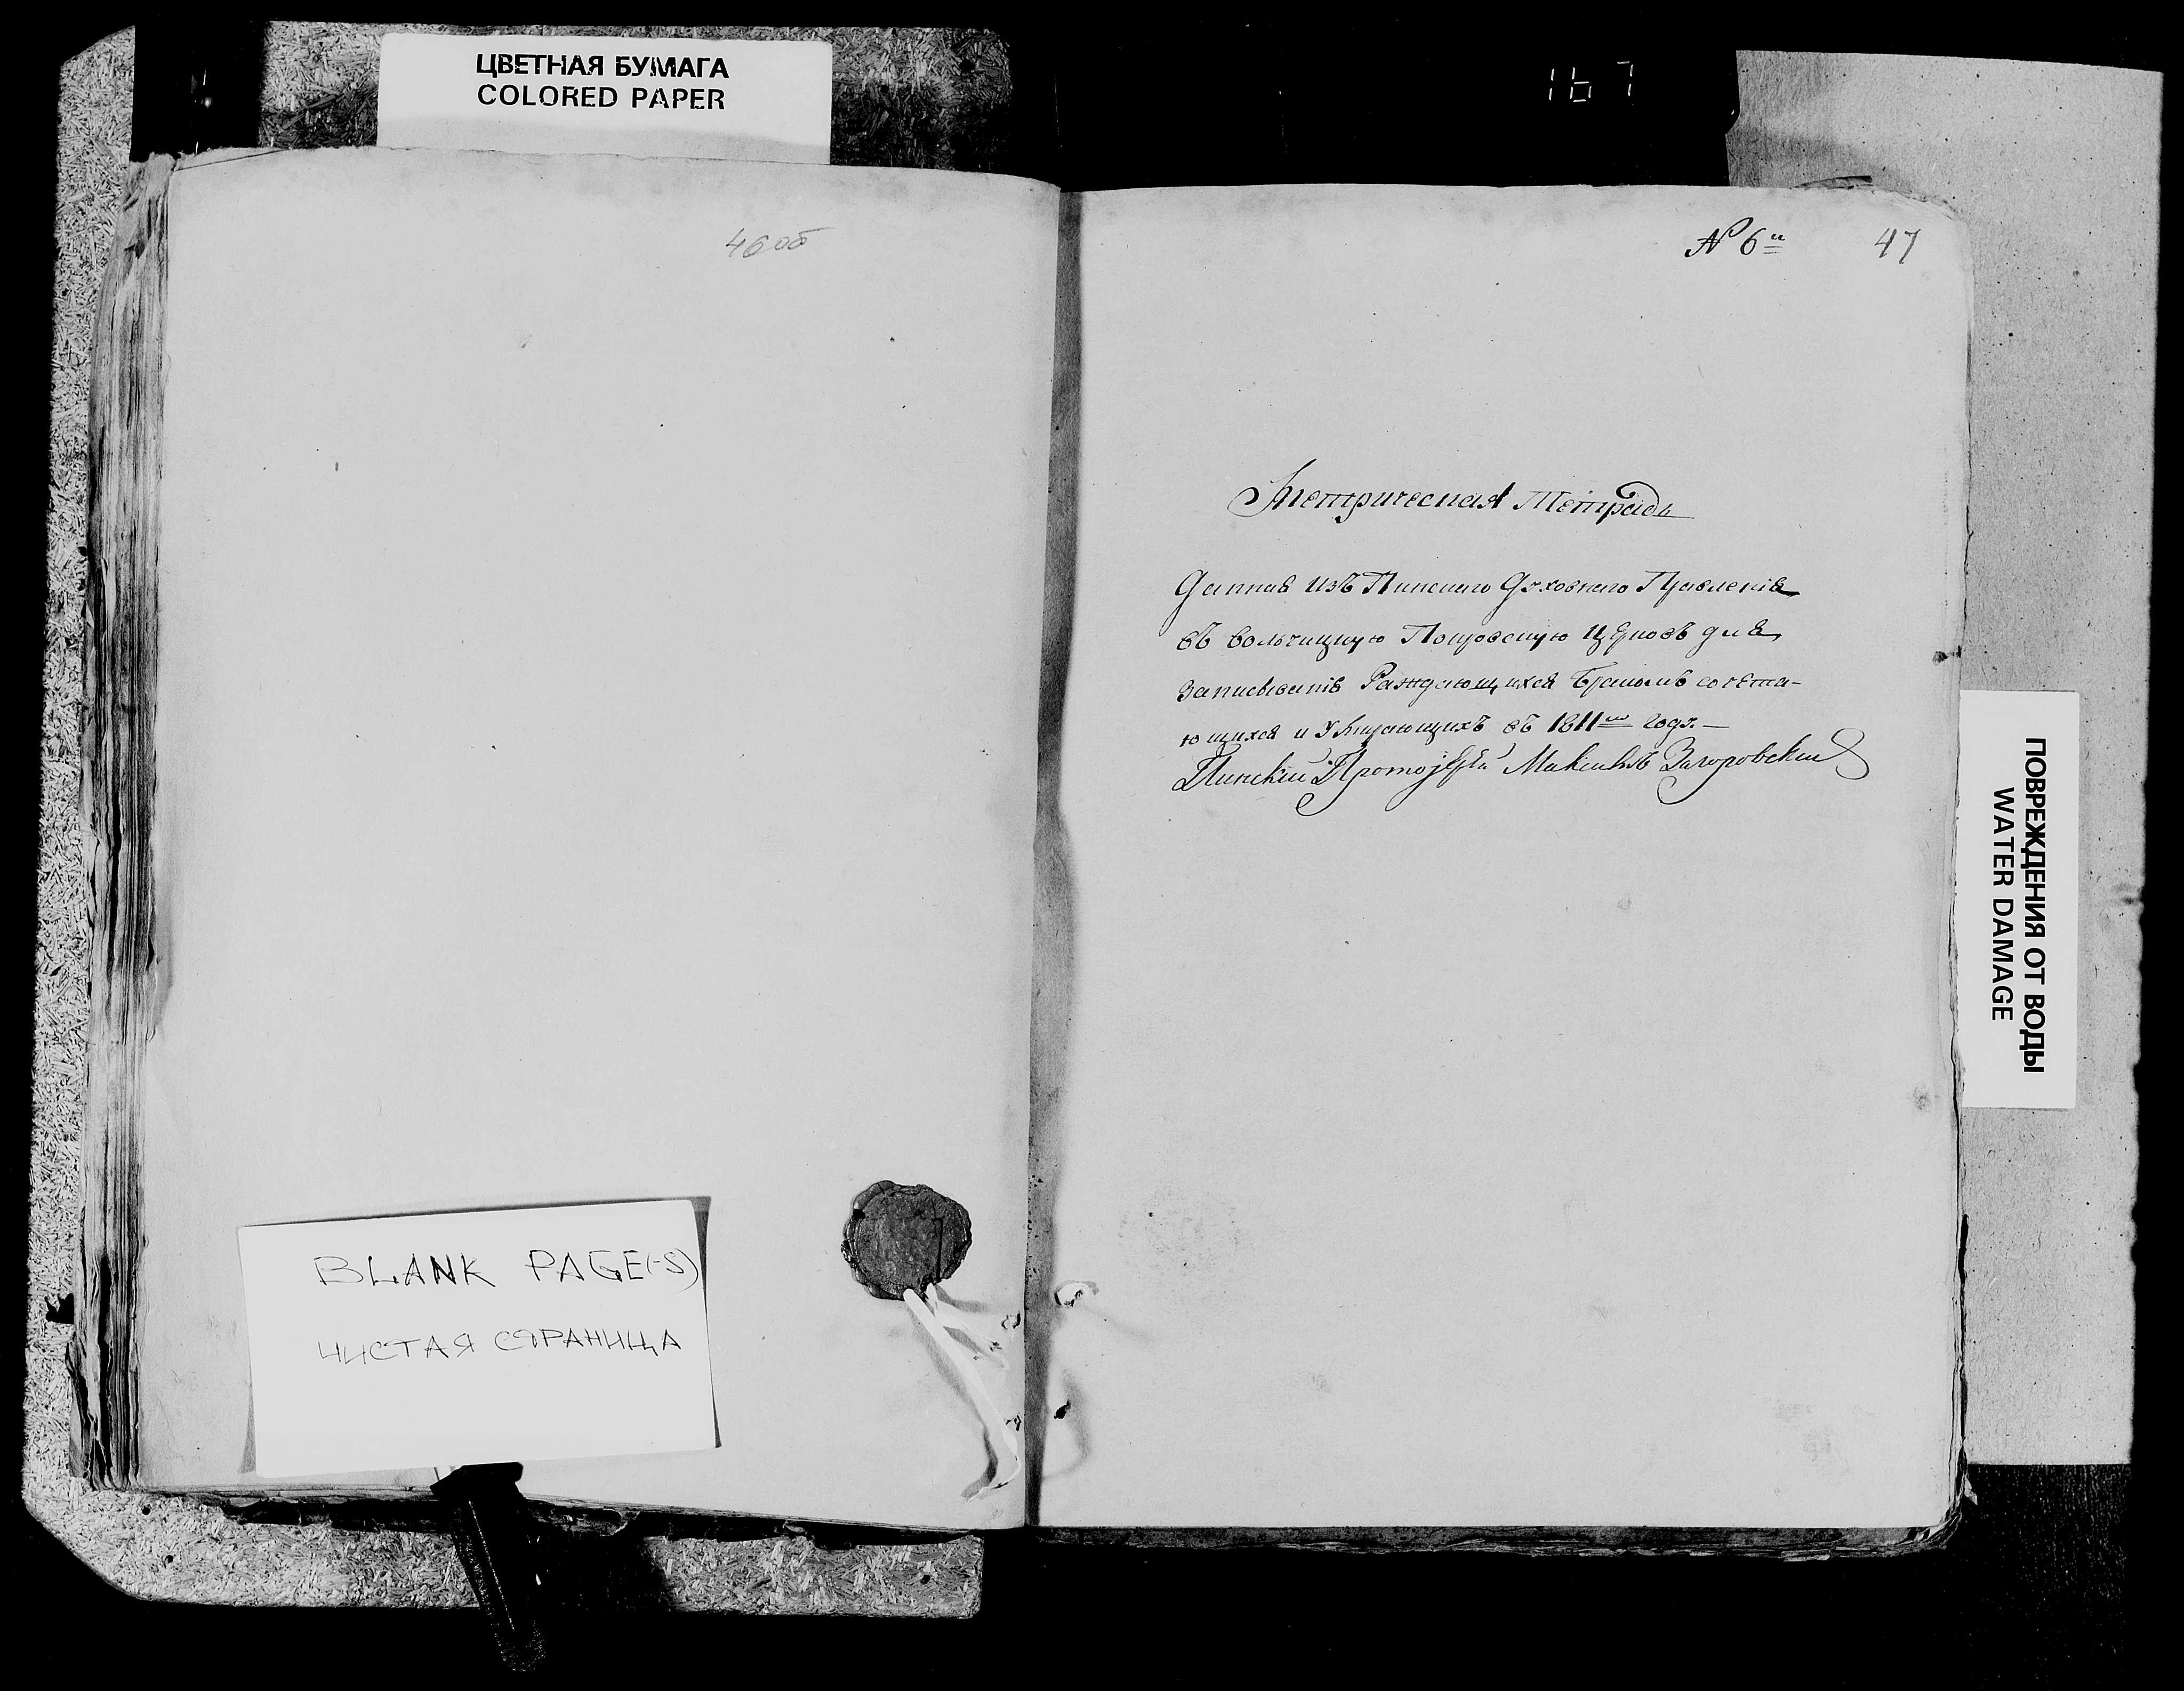 ЦВЕТНАЯ БУМАГА
COLORED PAPER
167
46об
BLANK PAGE(-S)
ЧИСТАЯ СТРАНИЦА
№ 6й
47
Метрическая Тетрадь
Данная изъ Пинскаго Духовнаго Правленія
въ Вольчицкую Покровскую Церковь для
записыванія Раждающихся Бракомъ сочета-
ющихся и Умирающихъ въ 1811м годѣ.
Пинскій Протоіерей Максимъ Загоровскій
ПОВРЕЖДЕНИЯ ОТ ВОДЫ
WATER DAMAGE